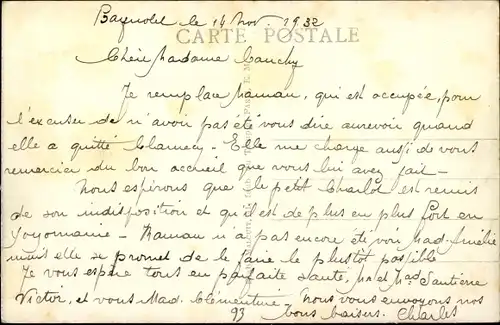 le 14 Nov. 1932
CARTE POSTALE
Chère Madame Cauchy
Je remplace Maman, qui est occupée, pour
l'excuser de n'avoir pas été vous dire aurevoir quand
elle a quitté Clamecy - Elle me charge aussi de vous
remercier du bon accueil que vous lui avez fait -
Nous espérons que le petit Charlot est remis
de son indisposition et qu'il est de plus en plus fort en
Yoyomanie - Maman n'a pas encore été voir Mad. Amélie
mais elle se promet de le faire le plustôt possible
Je vous espère tous en parfaite santé, M. et Mad. Santierne
Victor, et vous Mad. Clémentine - Nous vous envoyons nos
93 bons baisers. Charles